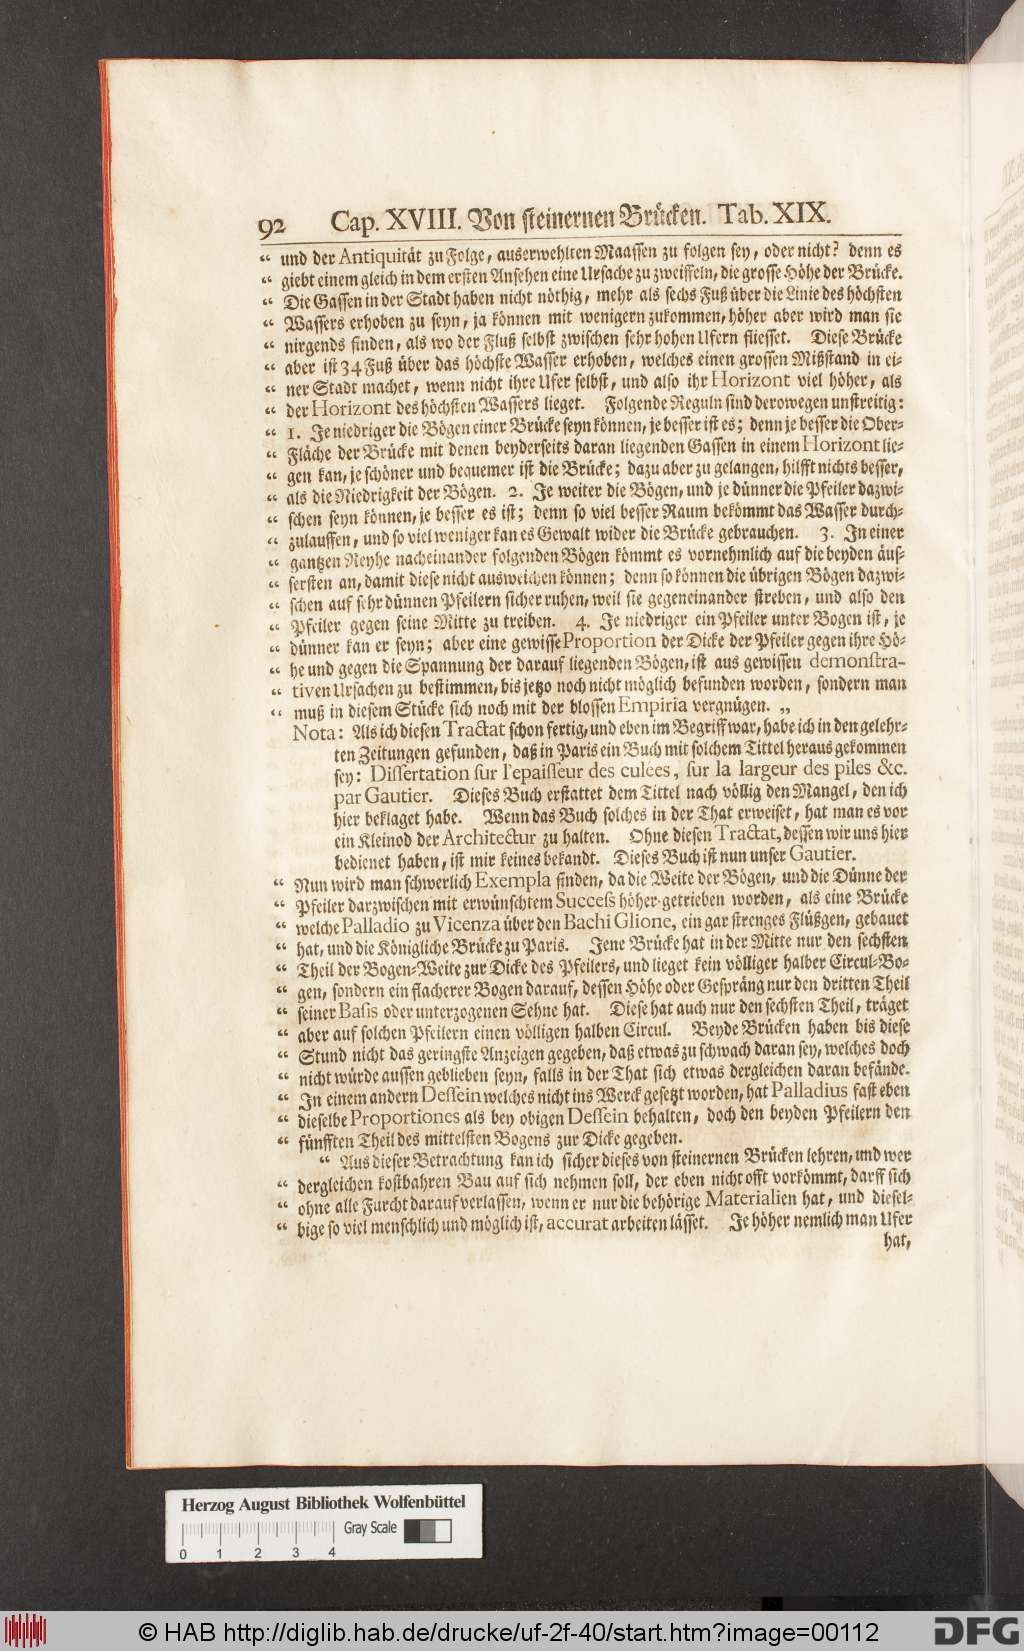 92 Cap. XVIII. Von steinernen Brücken. Tab. XIX.
“ und der Antiquität zu Folge, auserwehlten Maassen zu folgen sey, oder nicht? denn es
“ giebt einem gleich in dem ersten Ansehen eine Ursache zu zweiffeln, die grosse Höhe der Brücke.
“ Die Gassen in der Stadt haben nicht nöthig, mehr als sechs Fuß über die Linie des höchsten
“ Wassers erhoben zu seyn, ja können mit wenigern zukommen, höher aber wird man sie
“ nirgends finden, als wo der Fluß selbst zwischen sehr hohen Ufern fliesset. Diese Brücke
“ aber ist 34 Fuß über das höchste Wasser erhoben, welches einen grossen Mißstand in ei-
“ ner Stadt machet, wenn nicht ihre Ufer selbst, und also ihr Horizont viel höher, als
“ der Horizont des höchsten Wassers lieget. Folgende Reguln sind derowegen unstreitig:
“ 1. Je niedriger die Bögen einer Brücke seyn können, je besser ist es; denn je besser die Ober-
“ Fläche der Brücke mit denen beyderseits daran liegenden Gassen in einem Horizont lie-
“ gen kan, je schöner und bequemer ist die Brücke; dazu aber zu gelangen, hilfft nichts besser,
“ als die Niedrigkeit der Bögen. 2. Je weiter die Bögen, und je dünner die Pfeiler dazwi-
“ schen seyn können, je besser es ist; denn so viel besser Raum bekömmt das Wasser durch-
“ zulauffen, und so viel weniger kan es Gewalt wider die Brücke gebrauchen. 3. In einer
“ gantzen Reyhe nacheinander folgenden Bögen kömmt es vornehmlich auf die beyden äus-
“ sersten an, damit diese nicht ausweichen können; denn so können die übrigen Bögen dazwi-
“ schen auf sehr dünnen Pfeilern sicher ruhen, weil sie gegeneinander streben, und also den
“ Pfeiler gegen seine Mitte zu treiben. 4. Je niedriger ein Pfeiler unter Bogen ist, je
“ dünner kan er seyn; aber eine gewisse Proportion der Dicke der Pfeiler gegen ihre Hö-
“ he und gegen die Spannung der darauf liegenden Bögen, ist aus gewissen demonstra-
“ tiven Ursachen zu bestimmen, bis jetzo noch nicht möglich befunden worden, sondern man
“ muß in diesem Stücke sich noch mit der blossen Empiria vergnügen. „
Nota: Als ich diesen Tractat schon fertig, und eben im Begriff war, habe ich in den gelehr-
ten Zeitungen gefunden, daß in Paris ein Buch mit solchem Tittel heraus gekommen
sey: Dissertation sur l'epaisseur des culées, sur la largeur des piles &c.
par Gautier. Dieses Buch erstattet dem Tittel nach völlig den Mangel, den ich
hier beklaget habe. Wenn das Buch solches in der That erweiset, hat man es vor
ein Kleinod der Architectur zu halten. Ohne diesen Tractat, dessen wir uns hier
bedienet haben, ist mir keines bekandt. Dieses Buch ist nun unser Gautier.
“ Nun wird man schwerlich Exempla finden, da die Weite der Bögen, und die Dünne der
“ Pfeiler darzwischen mit erwünschtem Success höher getrieben worden, als eine Brücke
“ welche Palladio zu Vicenza über den Bachi Glione, ein gar strenges Flüßgen, gebauet
“ hat, und die Königliche Brücke zu Paris. Jene Brücke hat in der Mitte nur den sechsten
“ Theil der Bogen-Weite zur Dicke des Pfeilers, und lieget kein völliger halber Circul-Bo-
“ gen, sondern ein flacherer Bogen darauf, dessen Höhe oder Gespräng nur den dritten Theil
“ seiner Basis oder unterzogenen Sehne hat. Diese hat auch nur den sechsten Theil, träget
“ aber auf solchen Pfeilern einen völligen halben Circul. Beyde Brücken haben bis diese
“ Stund nicht das geringste Anzeigen gegeben, daß etwas zu schwach daran sey, welches doch
“ nicht würde aussen geblieben seyn, falls in der That sich etwas dergleichen daran befände.
“ In einem andern Dessein welches nicht ins Werck gesetzt worden, hat Palladius fast eben
“ dieselbe Proportiones als bey obigen Dessein behalten, doch den beyden Pfeilern den
“ fünfften Theil des mittelsten Bogens zur Dicke gegeben.
“ Aus dieser Betrachtung kan ich sicher dieses von steinernen Brücken lehren, und wer
“ dergleichen kostbahren Bau auf sich nehmen soll, der eben nicht offt vorkömmt, darff sich
“ ohne alle Furcht darauf verlassen, wenn er nur die behörige Materialien hat, und diesel-
“ bige so viel menschlich und möglich ist, accurat arbeiten lässet. Je höher nemlich man Ufer
hat,
Herzog August Bibliothek Wolfenbüttel
Gray Scale
0 1 2 3 4
© HAB http://diglib.hab.de/drucke/uf-2f-40/start.htm?image=00112
DFG